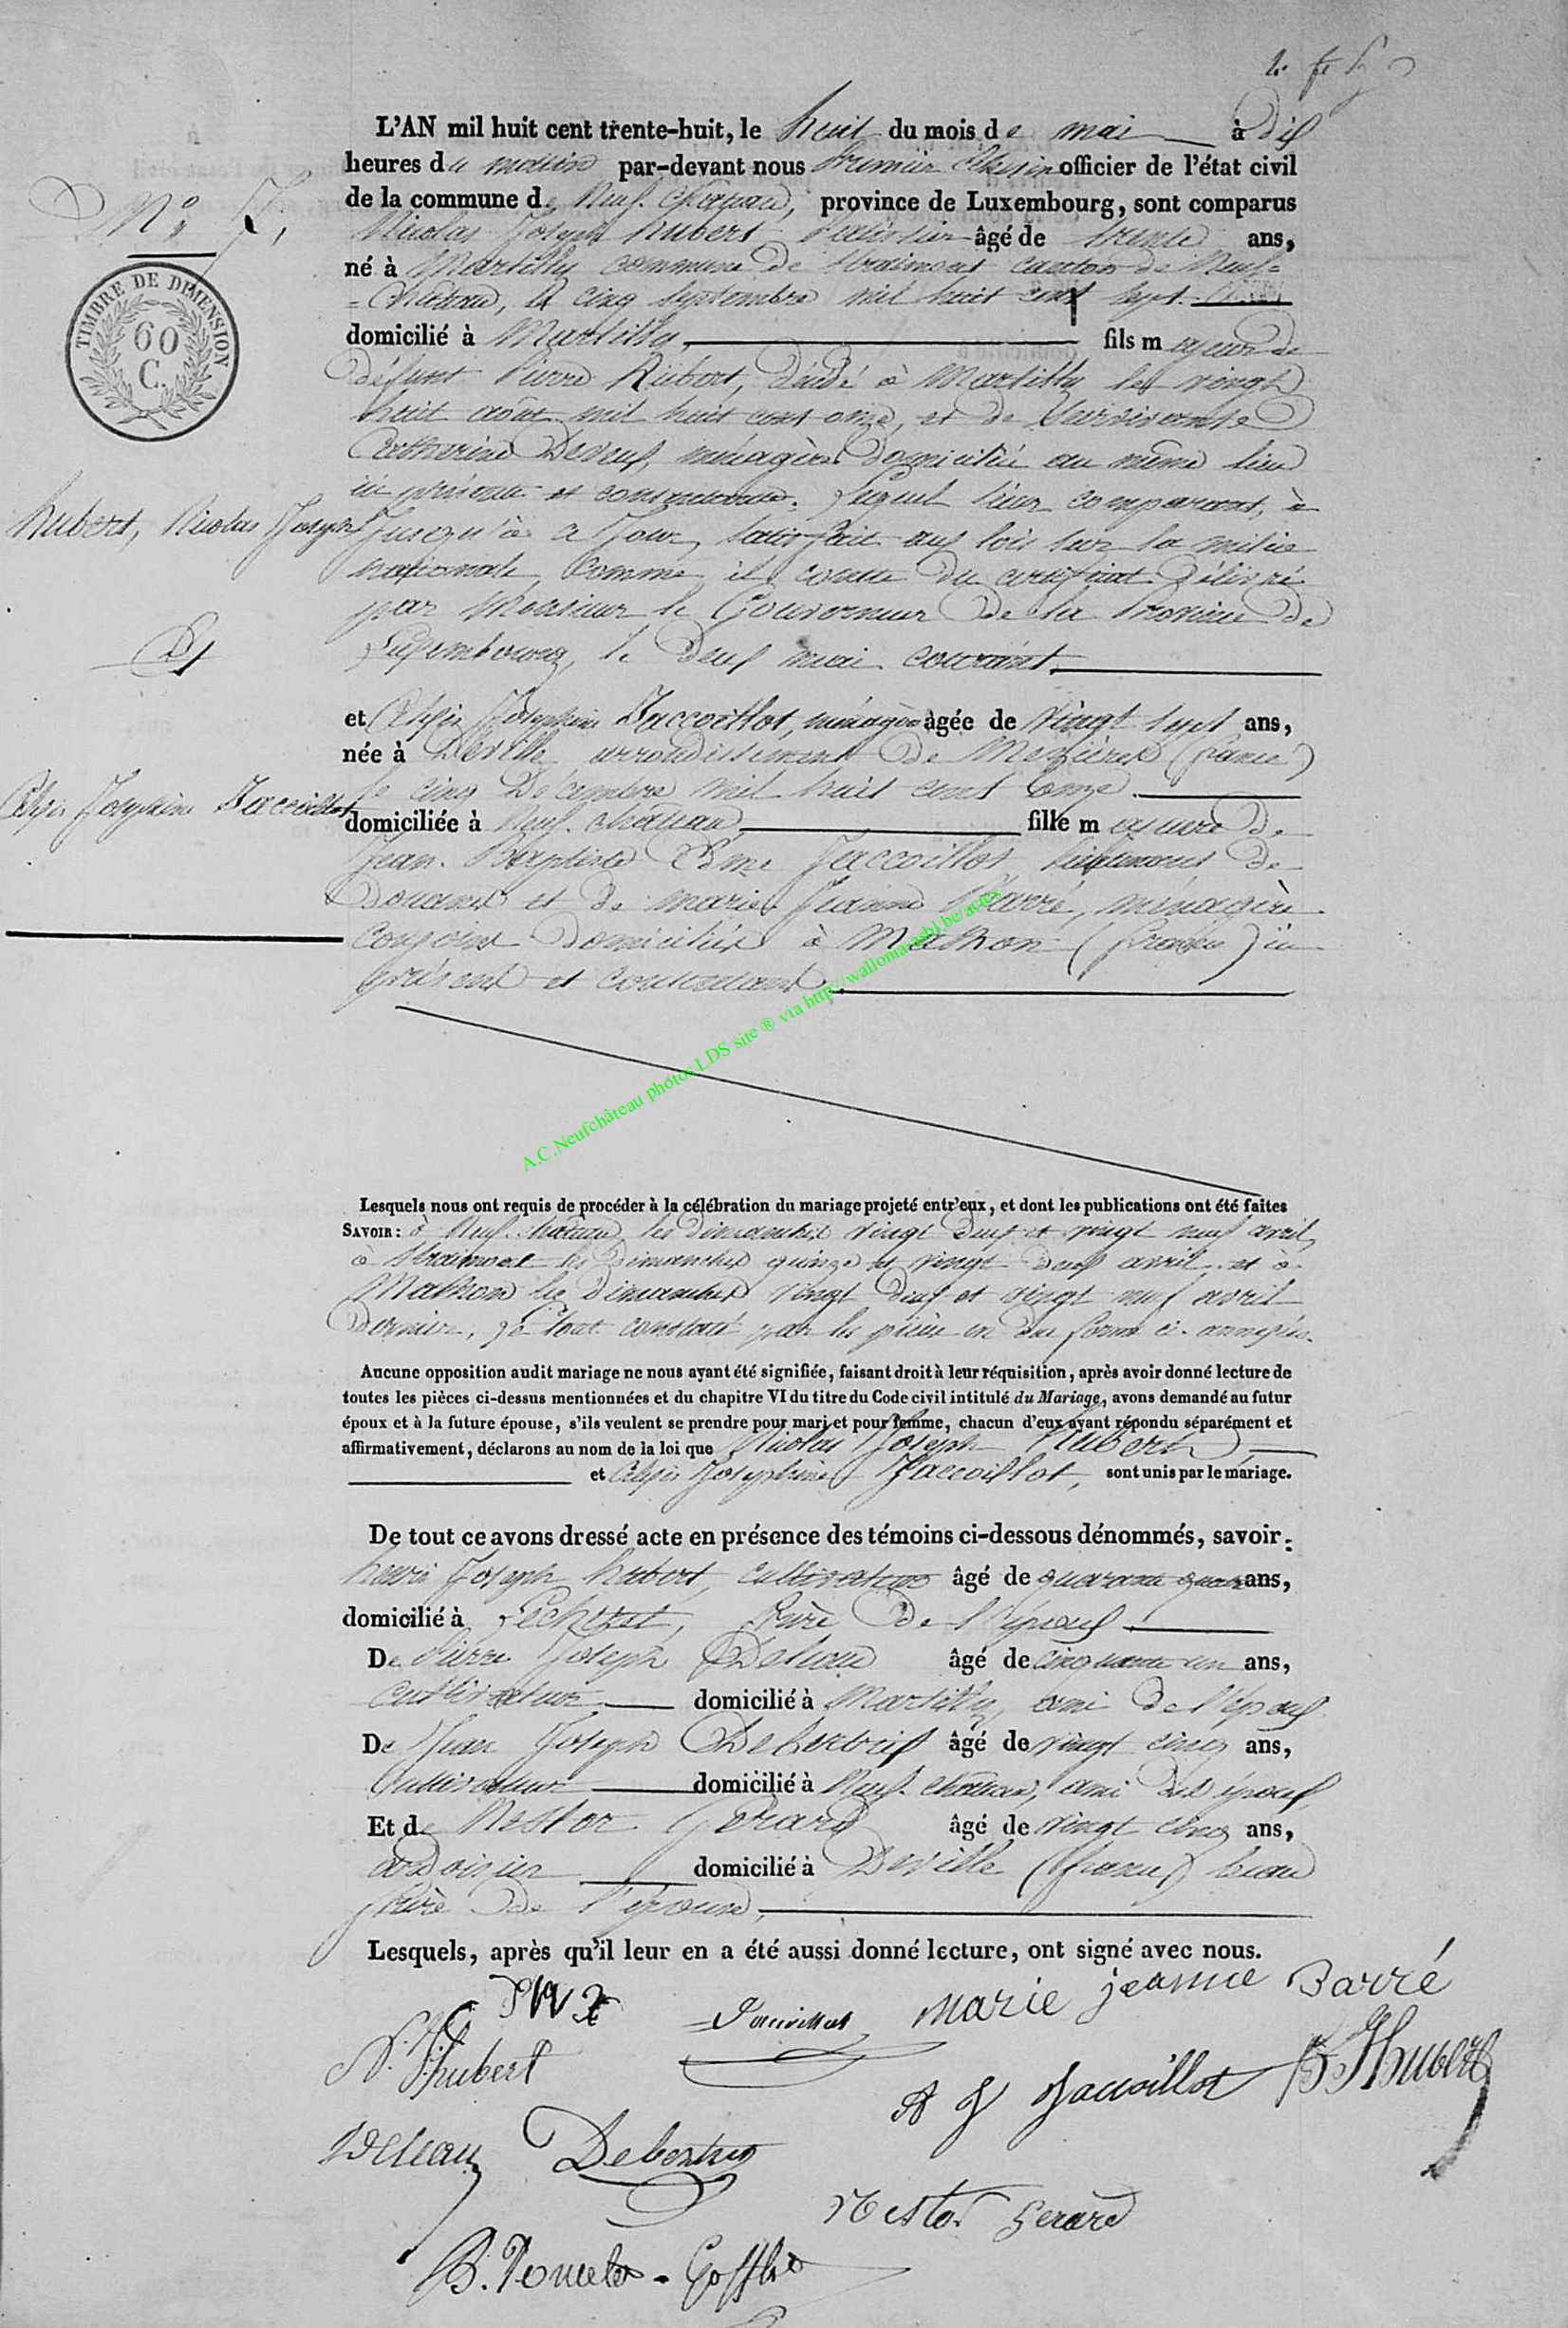 L'AN mil huit cent trente-huit, le huit du mois de mai à dix
heures du matin par-devant nous premier Echevin officier de l'état civil
de la commune de Neuf-château, province de Luxembourg, sont comparus
N° 7,
Nicolas Joseph hubert âgé de trente ans,
né à Martilly commune de Straimont canton de Neuf-
-château, le cinq Septembre mil huit cent sept.
TIMBRE DE DIMENSION
60
C.
domicilié à Martilly, fils majeur de
défunt Pierre Hubert, décédé à Martilly le vingt
huit août mil huit cent onze, et de Survivante
Catherine ménagère domiciliée au même lieu
ici présente et consentante. Lequel Sieur comparant, à
hubert, Nicolas Joseph
jusqu'à ce Jour, Satisfait aux lois Sur la milice
nationale, Comme il conste du certificat délivré
par Monsieur le Gouverneur de la Province de
Luxembourg, le deux mai courant.
Et
et Josephine Jaccoillot, ménagère âgée de Vingt Sept ans,
née à Deville arrondissement de Mezières (france)
le cinq Décembre mil huit cent
Josephine Jaccoillot
domiciliée à Neuf-château fille majeure de
Jean-Baptiste Edme Jaccoillot, Lieutenant de
Douanes et de marie Jeanne Barré, ménagère
conjoints Domiciliés à Mathon (france) ici
présents et consentants.
A.C.Neufchâteau photos LDS site ® via http://wallonia-asbl.be/actes
Lesquels nous ont requis de procéder à la célébration du mariage projeté entr'eux, et dont les publications ont été faites
SAVOIR : à Neuf-château les dimanches vingt deux et vingt neuf avril,
à Straimont les dimanches quinze et vingt deux avril et à
Mathon les dimanches vingt deux et vingt neuf avril
Dernier, Le Tout constaté par les pièces en due forme ci-annexées.
Aucune opposition audit mariage ne nous ayant été signifiée, faisant droit à leur réquisition, après avoir donné lecture de
toutes les pièces ci-dessus mentionnées et du chapitre VI du titre du Code civil intitulé du Mariage, avons demandé au futur
époux et à la future épouse, s'ils veulent se prendre pour mari et pour femme, chacun d'eux ayant répondu séparément et
affirmativement, déclarons au nom de la loi que Nicolas Joseph Hubert
et Josephine Jaccoillot, sont unis par le mariage.
De tout ce avons dressé acte en présence des témoins ci-dessous dénommés, savoir :
henri Joseph hubert, cultivateur âgé de quarante quatre ans,
domicilié à frère de l'époux.
De Pierre Joseph Deleau âgé de cinquante un ans,
Cultivateur domicilié à Martilly, ami de l'époux
De Jean Joseph âgé de vingt cinq ans,
Cultivateur domicilié à Neuf-château, ami des époux,
Et de Nestor Gerard âgé de vingt cinq ans,
ardoisier domicilié à Deville (france) beau
frère de l'épouse,
Lesquels, après qu'il leur en a été aussi donné lecture, ont signé avec nous.
Jaccoillot Marie jeanne Barré
N. J. hubert
A J Jaccoillot H J Hubert
Deleau
Nestor Gerard